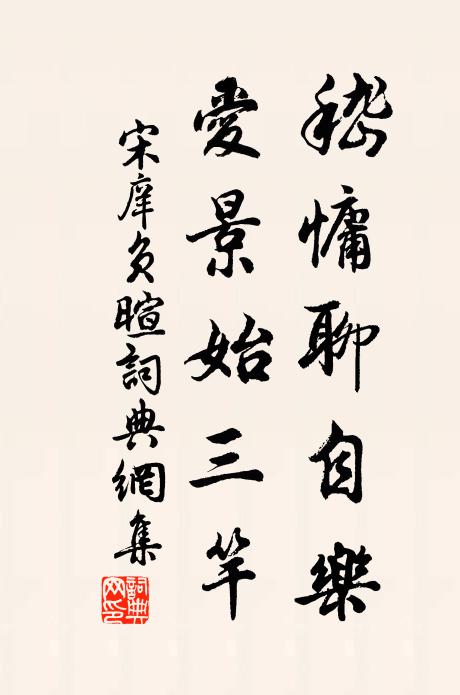 嵇慵聊自樂
愛景始三竿
宋庠負暄詞典網集
詞典
网印